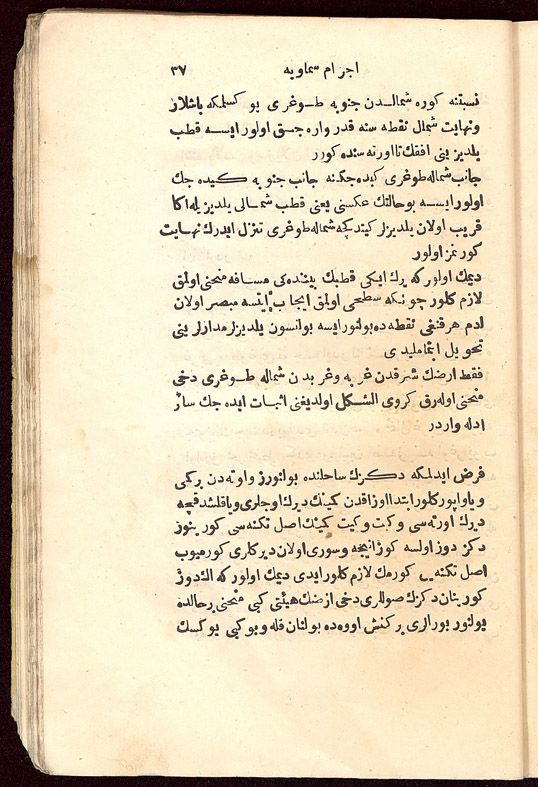 اجرام سماویه ٣٧
نسبتنه كوره شمالــدن جنوبه طــوغری یوكسلمكه باشلار
ونهایت شمال نقطه سنه قدر واره جــق اولور ایســه قطب
یلدیزینی افقك تا اورته سنده كورر
جانب شماله طوغری كیده جكنه جانب جنوبه كــیده جك
اولور ایســه بوحالتك عكسنی یعنی قطب شمــالی یلدیزیله اكا
قریب اولان یلدیزلر كیتدكچه شماله طوغری تنزل ایدرك نهــایت
كورنمز اولور
دیمك اولور كه یرك ایكی قطبك بیننده كی مســافه منحنی اولمق
لازم كلور چونكه سطحی اولمق ایجاب ایتسه مبصر اولان
ادم هرقنغی نقطه ده بولنور ایسه بولنسون یلدیزلر مدارلرینی
تحویل ایتماملیدی
فقط ارضك شرقدن غربه وغربدن شماله طــوغری دخی
منحنی اوله رق كروی الشكل اولدیغنی اثبات ایده جك سائر
ادله واردر
فرض ایدلمكه دكزك ساحلنده بولنورز واوته دن بر كمی
ویا واپور كلور ابتدا اوزاقدن كمینك دیرك اوجلری ویاقلشدقچه
دیرك اورته سی وكیت وكیت كمینك اصل تكنه سی كورینور
دكز دوز اولسه كوز انیجه وسوری اولان دیركلری كورمیوب
اصل تكنه یی كورمك لازم كلور ایدی دیمك اولور كه الك دوز
كورینان دكزك صولری دخی ارضك هیئتی كبی منحنی بر حالده
بولنور بورالری بر كنش اووه ده بولنان قله وبوكبی یوكسك